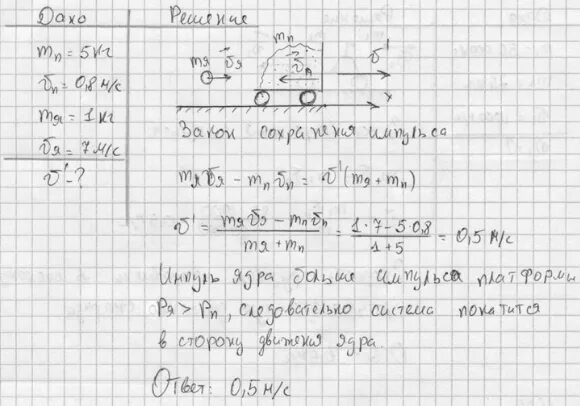 Дано
Решение
mп = 5 кг
υп = 0,8 м/с
mя = 1 кг
υя = 7 м/с
υ' - ?
mп
mя υя
υп
υ'
x
Закон сохранения импульса
mя υя - mп υп = υ' (mя + mп)
υ' = (mя υя - mп υп) / (mя + mп) = (1·7 - 5·0,8) / (1 + 5) = 0,5 м/с
Импуль ядра больше импульса платформы
Pя > Pп, следовательно система покатится
в сторону движения ядра.
Ответ: 0,5 м/с